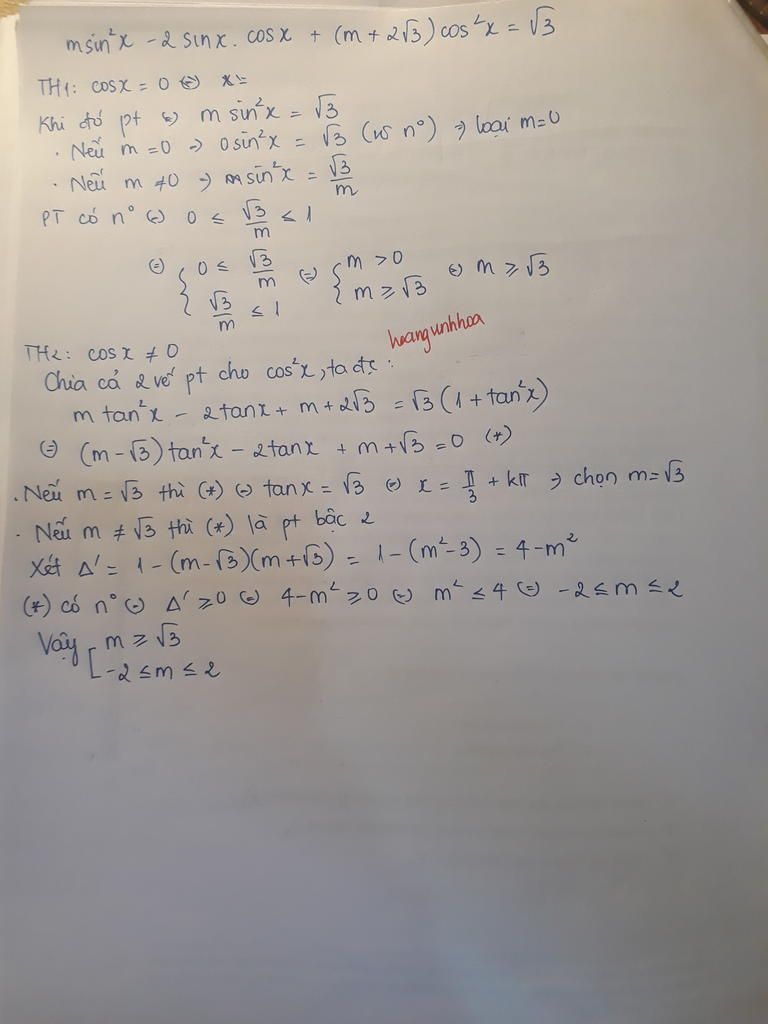 msin²x - 2 sinx. cosx + (m + 2√3) cos²x = √3
TH1: cosx = 0 (=) x=
Khi đó pt (=) m sin²x = √3
. Nếu m = 0 → 0sin²x = √3 (vô n°) → loại m=0
. Nếu m ≠ 0 → sin²x = √3/m
PT có n° (=) 0 ≤ √3/m ≤ 1
(=) { 0 ≤ √3/m ; √3/m ≤ 1 (=) { m > 0 ; m ≥ √3 (=) m ≥ √3
hoangunhhoa
TH2: cosx ≠ 0
Chia cả 2 vế pt cho cos²x, ta đc:
m tan²x - 2tanx + m + 2√3 = √3 (1 + tan²x)
(=) (m - √3) tan²x - 2tanx + m + √3 = 0 (*)
. Nếu m = √3 thì (*) (=) tanx = √3 (=) x = π/3 + kπ → chọn m = √3
. Nếu m ≠ √3 thì (*) là pt bậc 2
Xét Δ' = 1 - (m - √3)(m + √3) = 1 - (m² - 3) = 4 - m²
(*) có n° (=) Δ' ≥ 0 (=) 4 - m² ≥ 0 (=) m² ≤ 4 (=) -2 ≤ m ≤ 2
Vậy [ m ≥ √3
-2 ≤ m ≤ 2